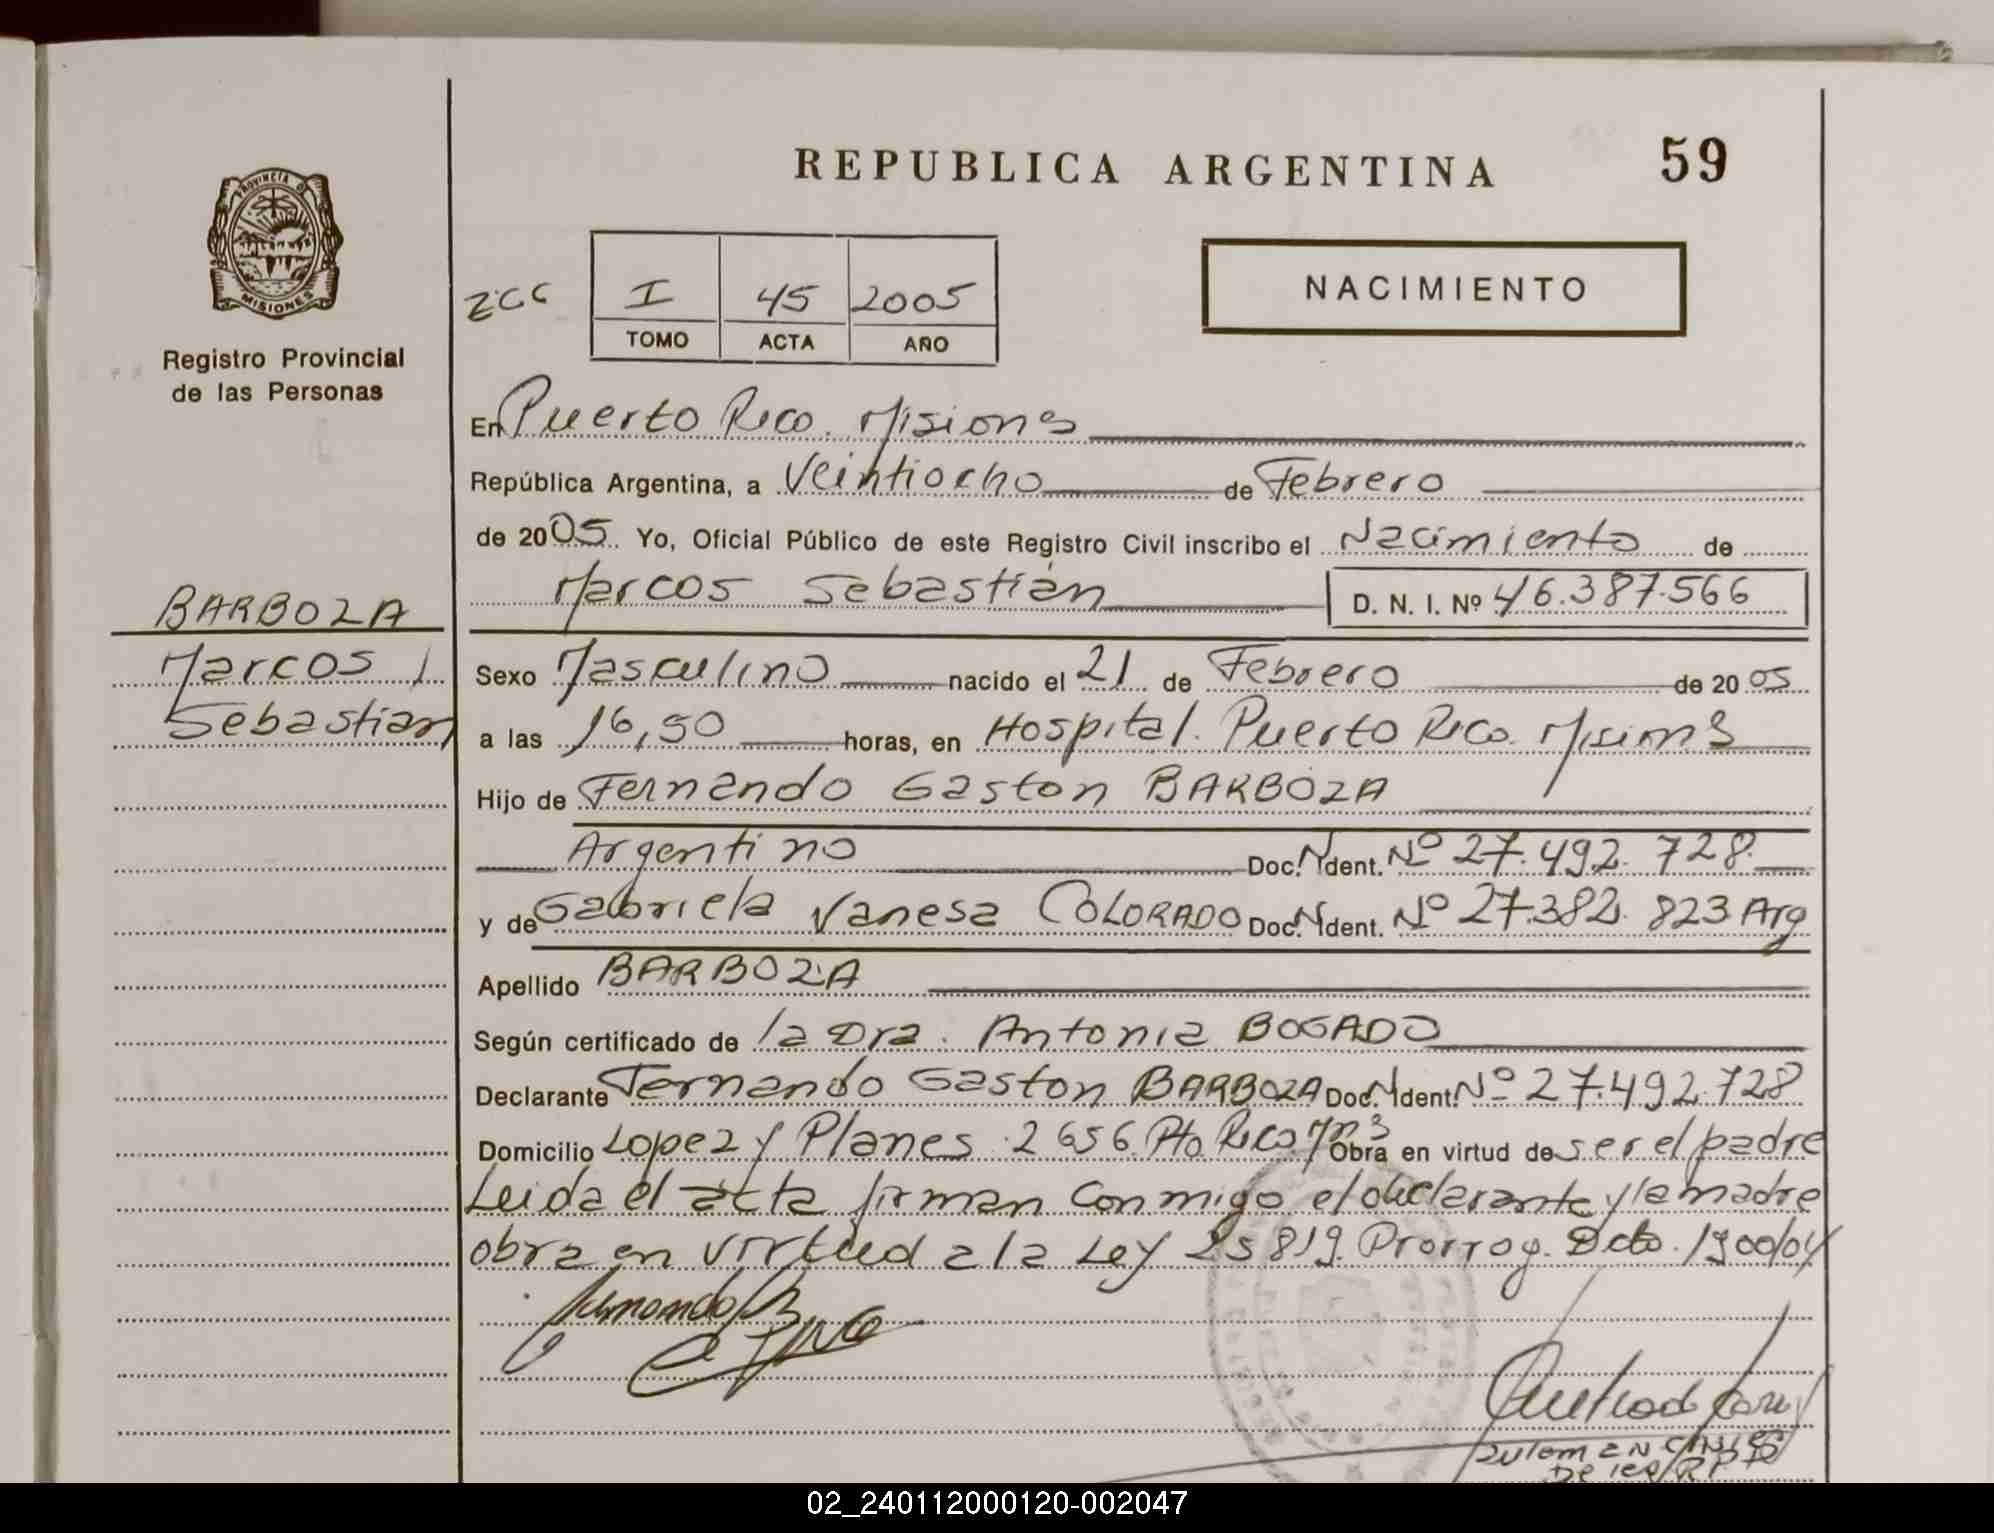 REPUBLICA ARGENTINA
59
PROVINCIA DE
MISIONES
Registro Provincial
de las Personas
I 45 2005
TOMO ACTA AÑO
NACIMIENTO
En Puerto Rico. Misiones
República Argentina, a Veintiocho de Febrero
de 2005. Yo, Oficial Público de este Registro Civil inscribo el Nacimiento de
Marcos Sebastián D. N. I. Nº 46.387.566
BARBOZA
Marcos
Sebastian
Sexo Masculino nacido el 21 de Febrero de 2005
a las 16,50 horas, en Hospital. Puerto Rico. Misiones
Hijo de Fernando Gaston BARBOZA
Argentino Doc. N Ident. Nº 27.492.728
y de Gabriela Vanesa COLORADO Doc. N Ident. Nº 27.382.823 Arg
Apellido BARBOZA
Según certificado de la Dra. Antonia BOGADO
Declarante Fernando Gaston BARBOZA Doc. N Ident. Nº 27.492.728
Domicilio Lopez y Planes 2656. Pto. Rico. Mnes Obra en virtud de ser el padre
Leida el acta firman conmigo el declarante y la madre
obra en virtud a la Ley 25819. Prorrog. Dcto. 1900/04
Fernando B
02_240112000120-002047